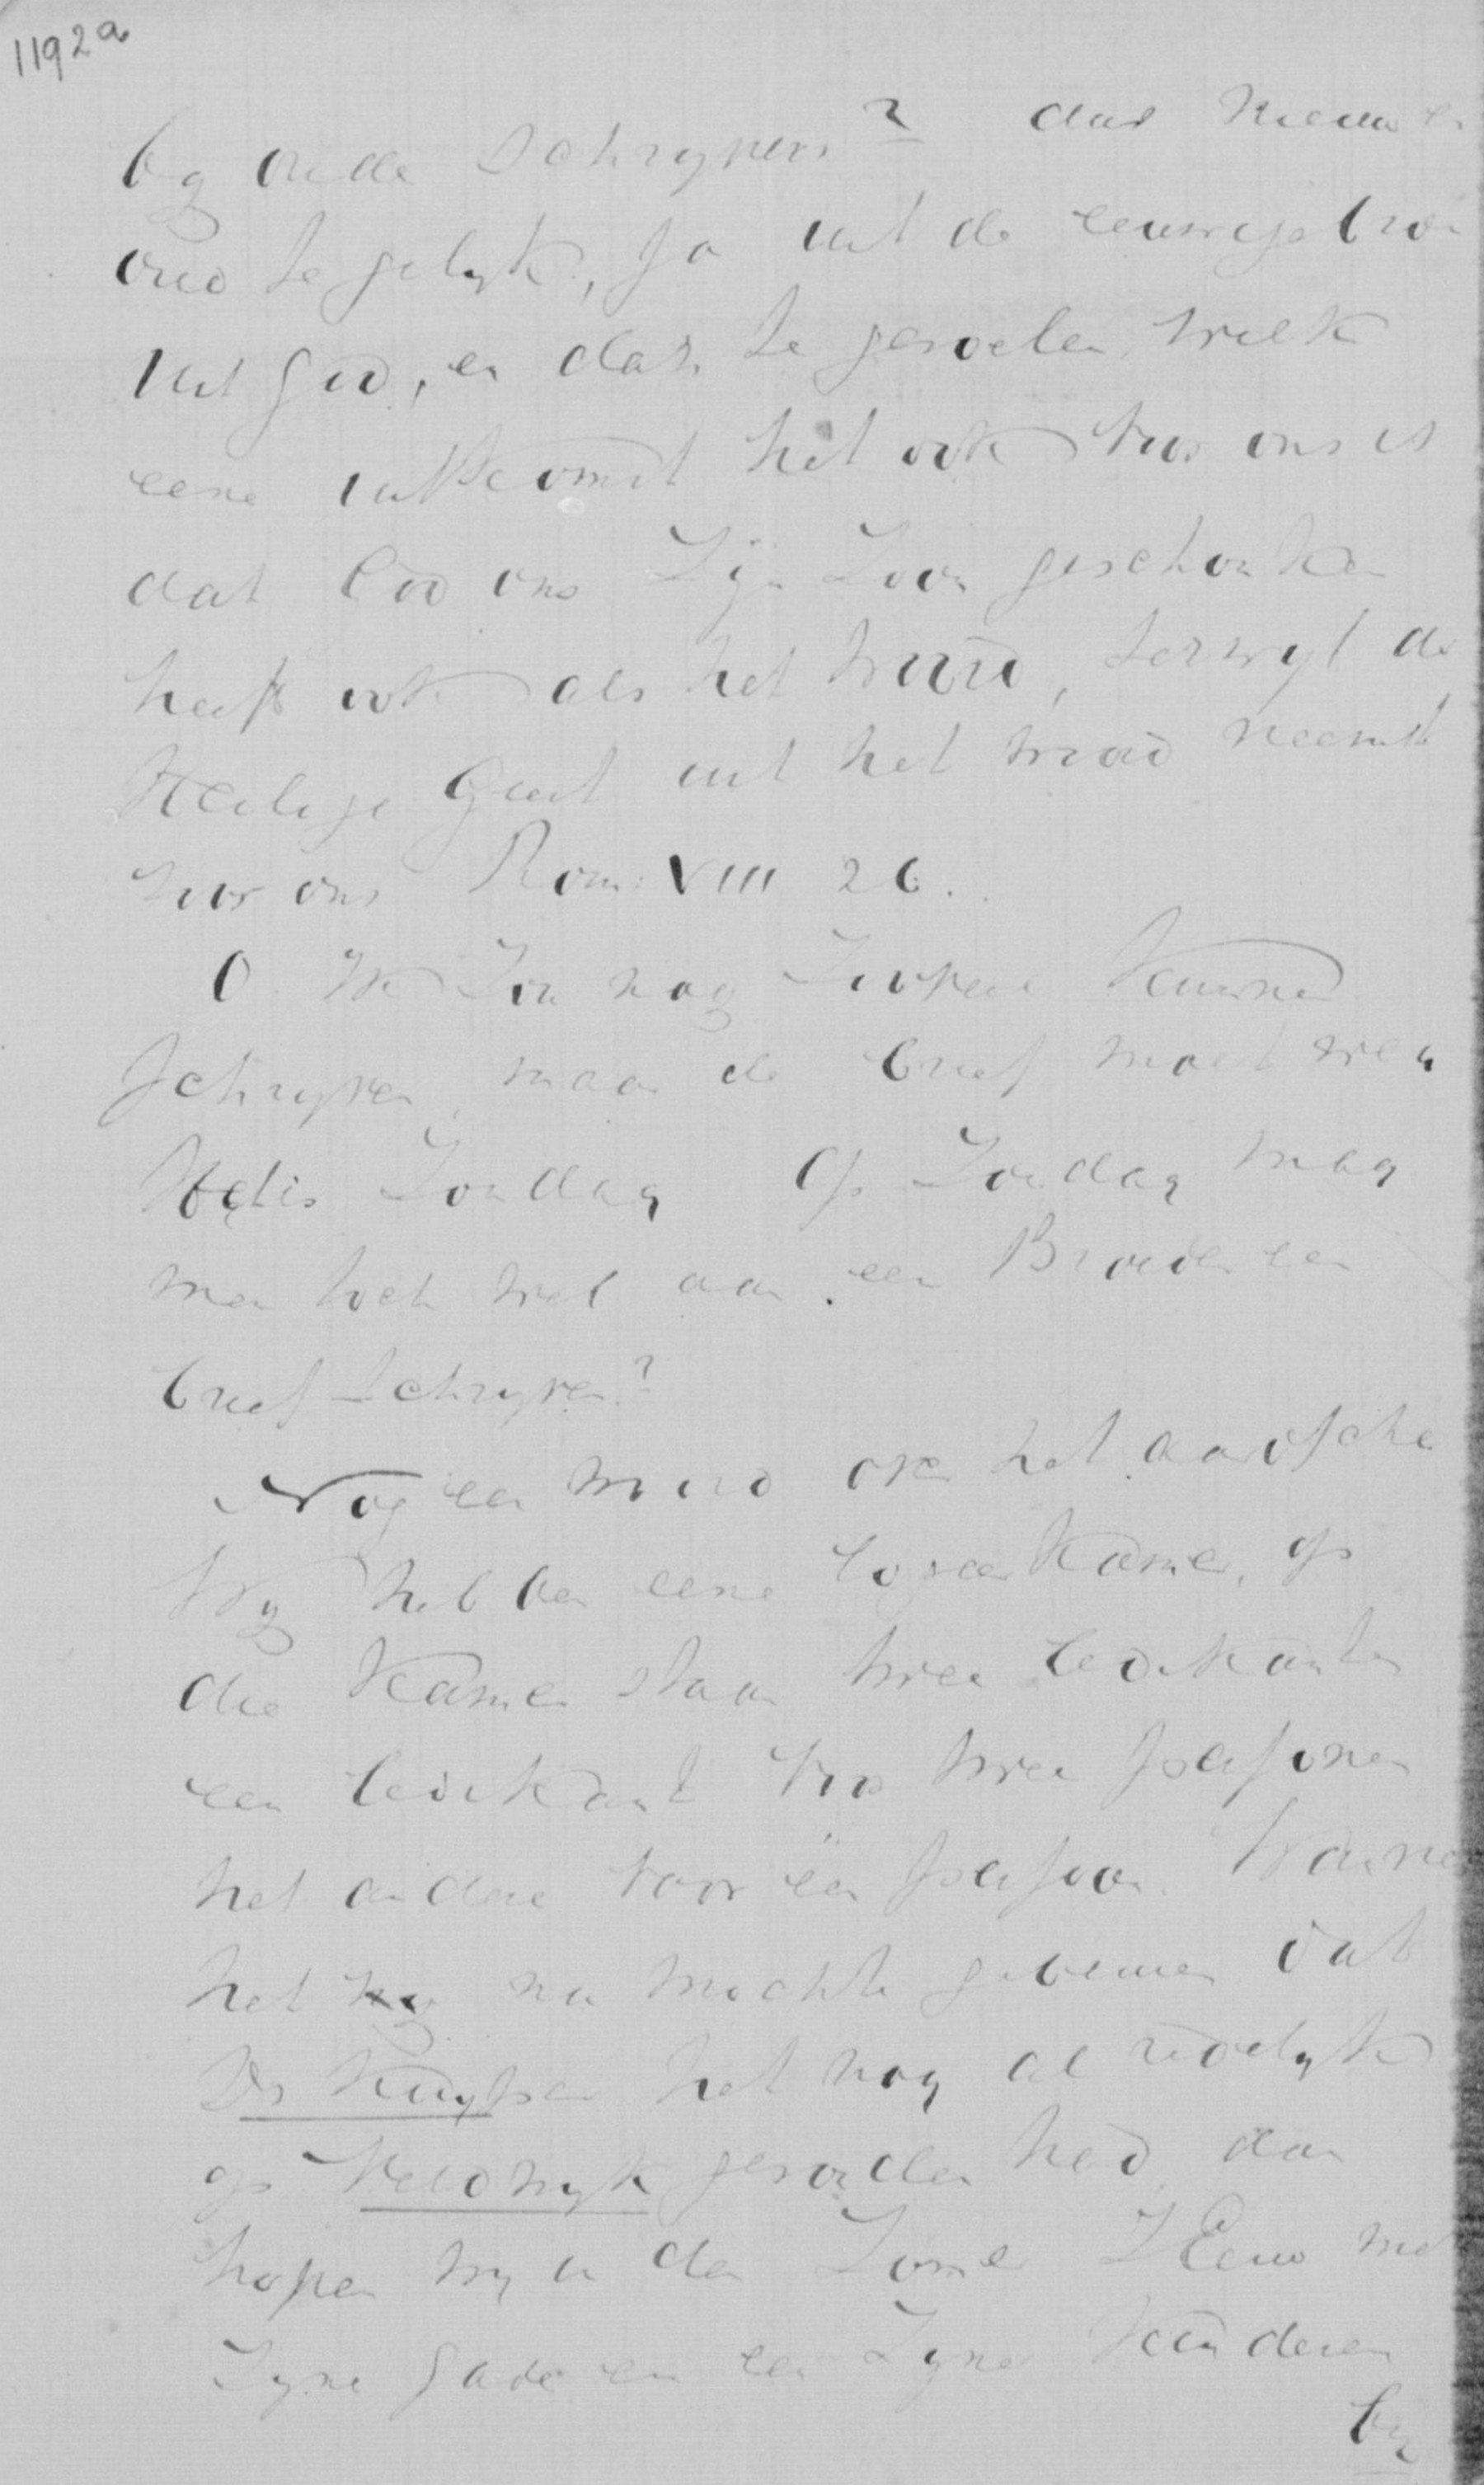 1192a
by oude schryvers? dat nieuw en
oud te gelyk, ja uit de eeuwige bron
uit God, en dan te gevoelen welk
eene uitkomst het ook voor ons is
dat God ons Zijn Zoon geschonken
heeft ook als het woord, terwyl de
Heilige Geest uit het woord neemt
voor ons Rom: VIII 26.
O. Ik zou nog zoovele kunnen
schryven, maar de brief moet weg
Het is Zondag Op Zondag mag
men toch wel aan een Broeder een
brief schryven?
Nog een woord over het aardsche
Wy hebben eene logeerkamer, op
die kamer staan twee ledikanten
een ledikant voor twee personen
het andere voor één persoon. Wanneer
het nu mochte gebeuren dat
Dr Kuyper het nog al redelyk
op Veldwyk gevonden had dan
hopen wy in den Zomer ZEerw met
Zyne gade en en Zyne kinderen
by